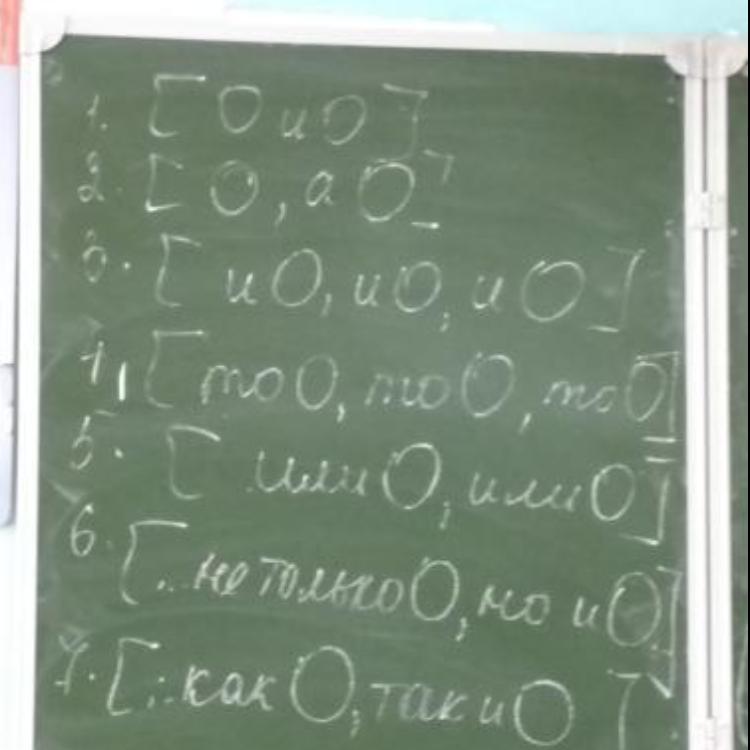 1. [О и О]
2. [О, а О]
3. [и О, и О, и О]
4. [то О, то О, то О]
5. [или О, или О]
6. [.. не только О, но и О]
7. [.. как О, так и О]